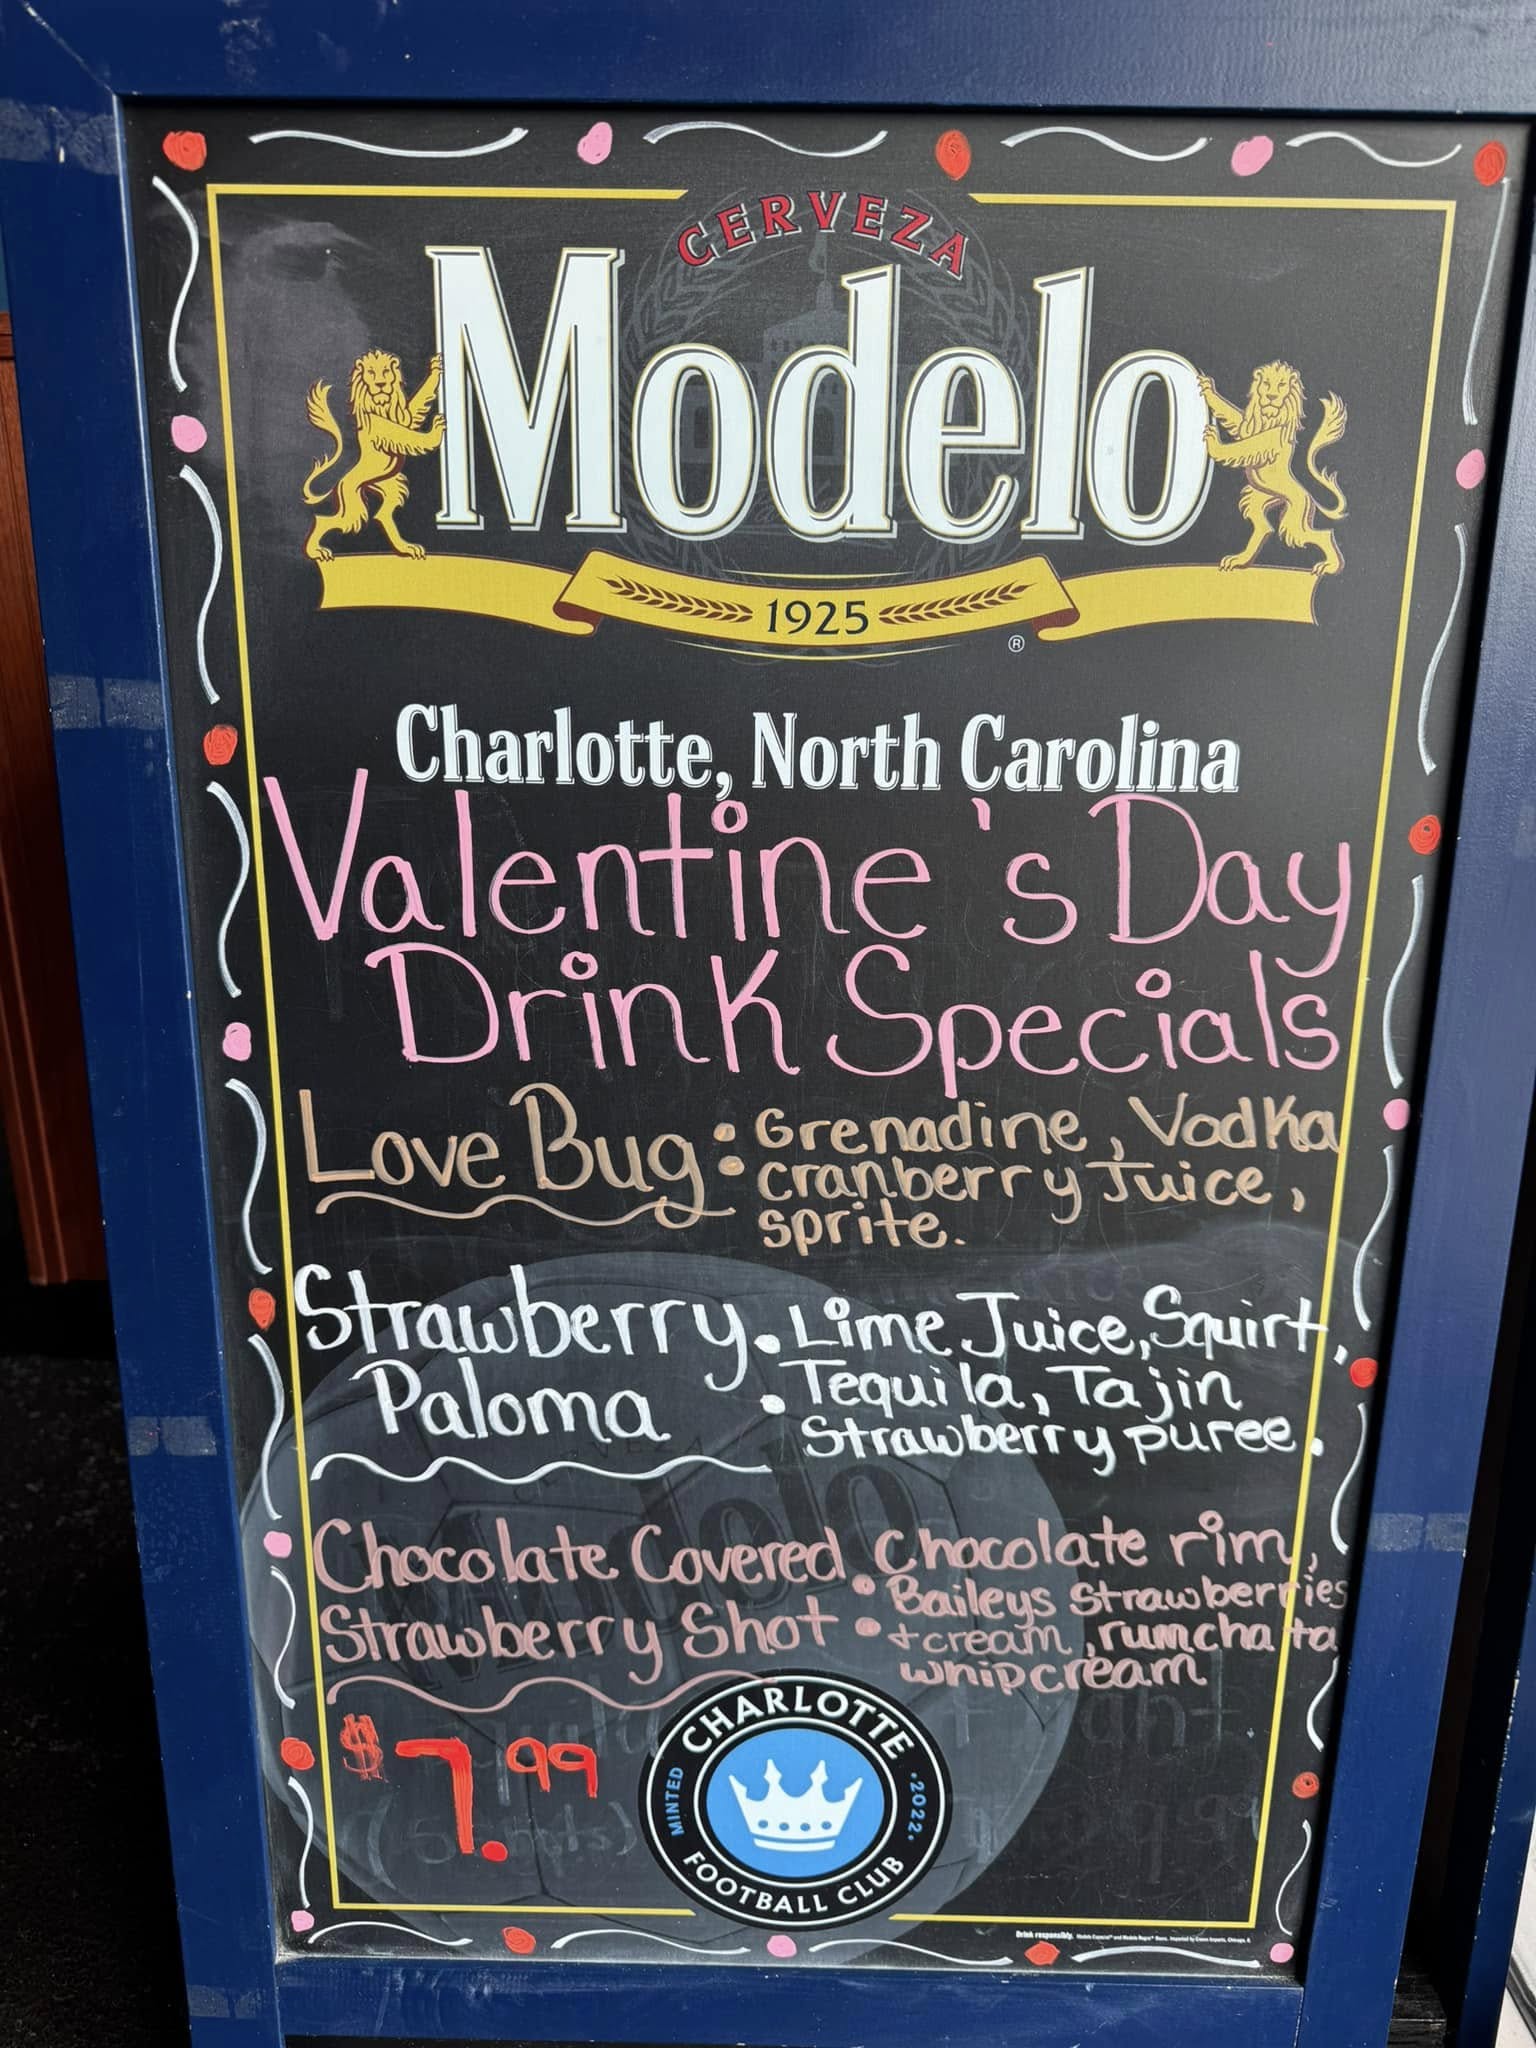 CERVEZA
Modelo
1925
®
Charlotte, North Carolina
Valentine's Day
Drink Specials
Love Bug: Grenadine, Vodka
cranberry Juice,
sprite.
Strawberry Paloma: Lime Juice, Squirt,
Tequila, Tajin
Strawberry puree.
Chocolate Covered Strawberry Shot: Chocolate rim,
Baileys Strawberries
+cream, rumchata
whipcream
$7.99
CHARLOTTE
MINTED 2022
FOOTBALL CLUB
Drink responsibly.